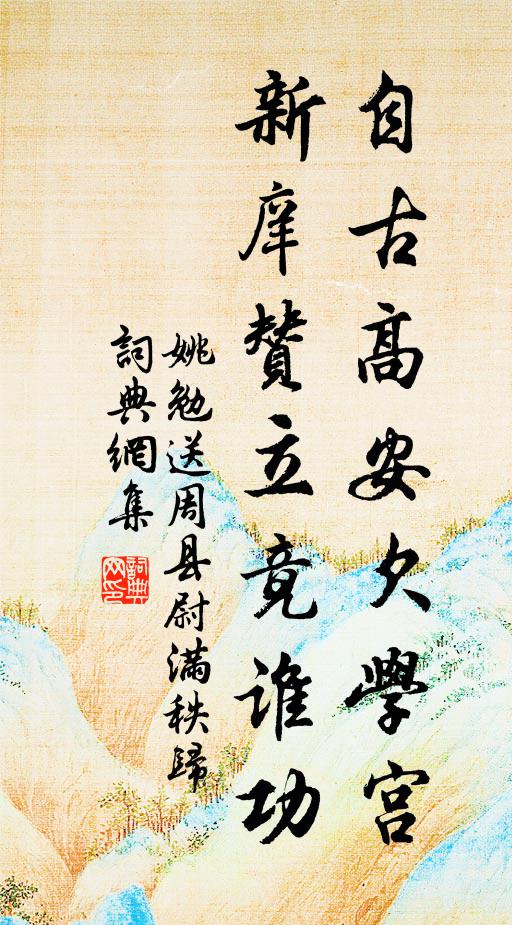 自古高安欠學宮
新庠贊立竟誰功
姚勉送周县尉滿秩歸
詞典網集
詞典网印